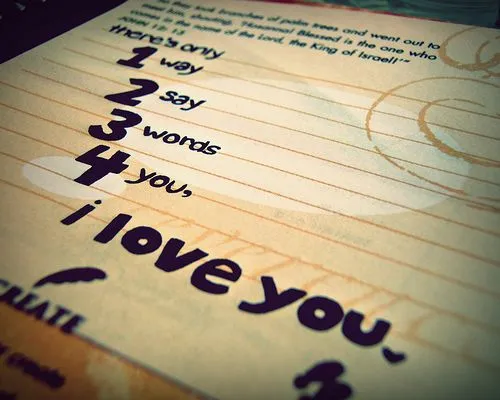 they took branches of palm trees and went out to
meet him, shouting, "Hosanna! Blessed is the one who
comes in the name of the Lord, the King of Israel!"
there's only
1 way
2 say
3 words
4 you,
i love you.
CREATE
create